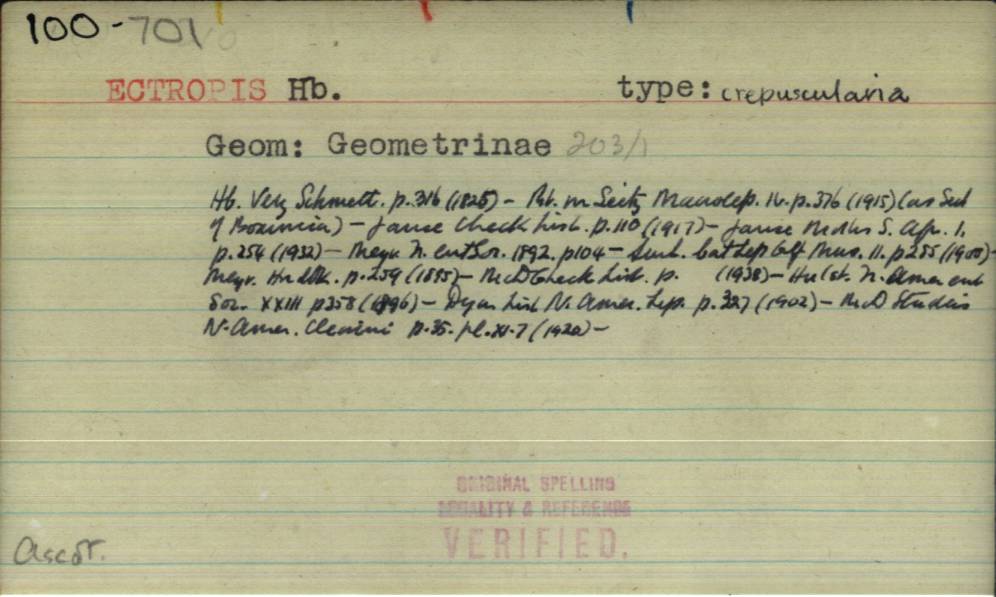 100-701
ECTROPIS Hb. type: crepuscularia
Geom: Geometrinae 203/1
Hb. Verz Schmett. p.316 (1825) - Pr. in Seitz Macrolep. 16. p.376 (1915) (as Sect
of Boarmia) - Janse Check List. p.110 (1917) - Janse Moths S. Afr. 1.
p.254 (1932) - Meyr. Tr. ent Soc. 1892. p104 - Swh. Cat Lep Mus. 11. p.285 (1900) -
Meyr. Hndbk. p.259 (1895) - McD Check List. p. (1938) - Hulst. Tr. Amer ent
Soc. XXIII p358 (1896) - Dyar List N. Amer. Lep. p.327 (1902) - McD Studies
N. Amer. Cleorini p.35. pl.XI.7 (1920) -
ORIGINAL SPELLING
LOCALITY & REFERENCE
VERIFIED.
Ascot.